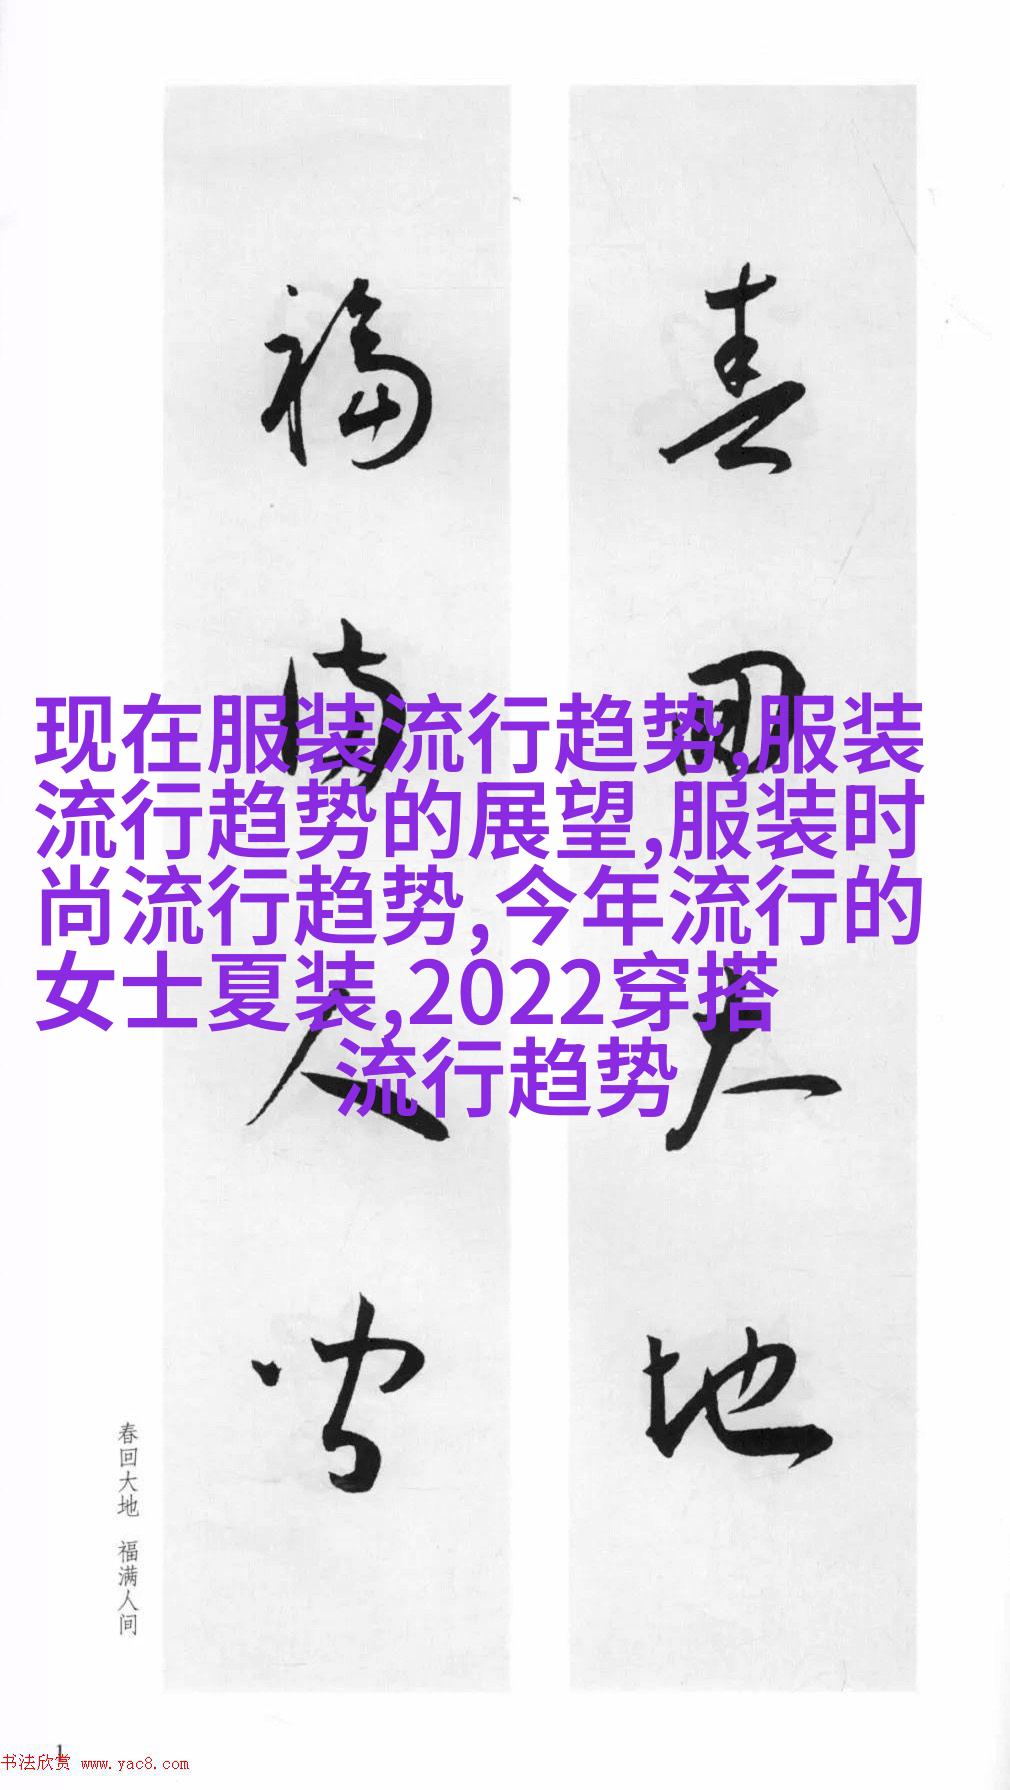 春回大地
福满人间
现在服装流行趋势,服装
流行趋势的展望,服装时
尚流行趋势,今年流行的
女士夏装,2022穿搭
流行趋势
春回大地 福满人间
1
书法欣赏 www.yac8.com